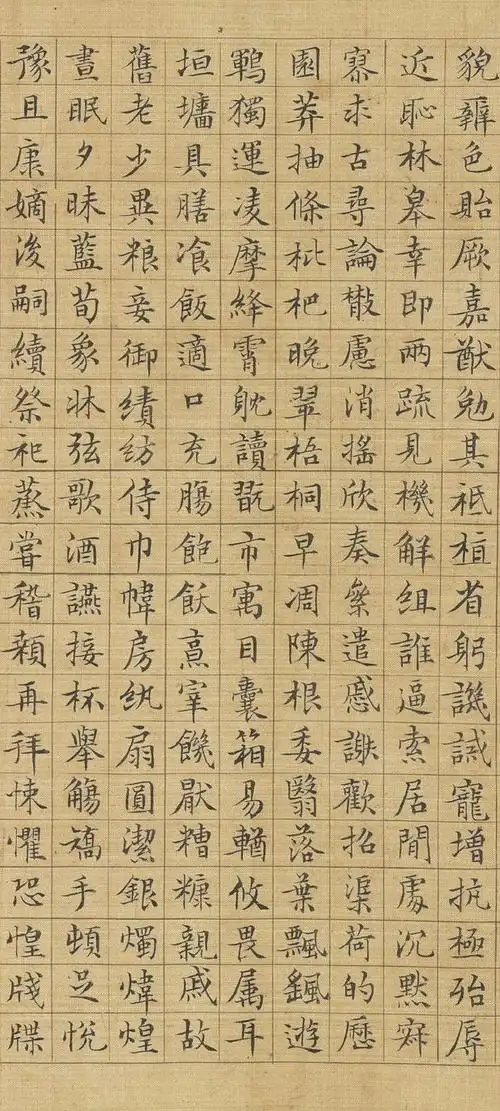 貌辨色貽厥嘉猷勉其祗植省躬譏誡寵增抗極殆辱
近恥林皋幸即兩疏見機解組誰逼索居閒處沉默寂
寥求古尋論散慮消搖欣奏累遣慼謝歡招渠荷的歷
園莽抽條枇杷晚翠梧桐早凋陳根委翳落葉飄颻遊
鶤獨運凌摩絳霄躭讀翫市寓目囊箱易輶攸畏属耳
垣墻具膳飡飯適口充腸飽飫烹宰饑厭糟糠親戚故
舊老少異粮妾御績紡侍巾幃房紈扇圓潔銀燭煒煌
晝眠夕昧藍荀象牀弦歌酒讌接杯舉觴矯手頓足悅
豫且康嫡後嗣續祭祀蒸嘗稽顙再拜悚懼恐惶牋牒